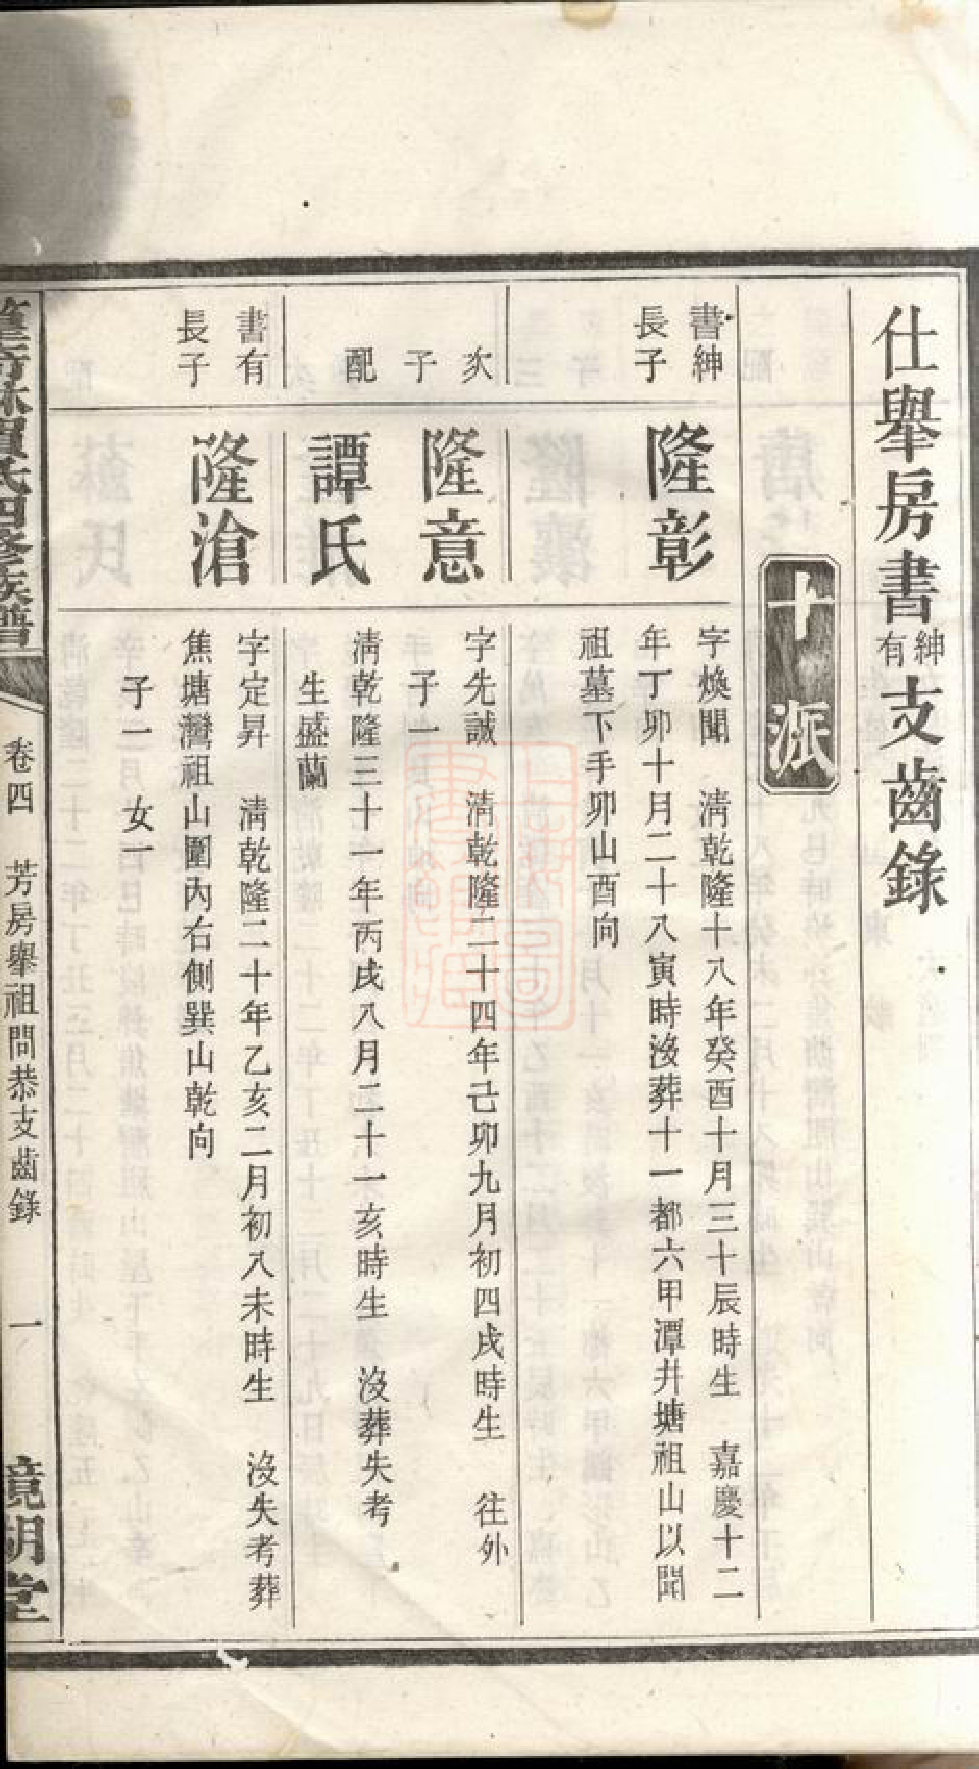 仕舉房書紳有支齒錄
十派
書紳
長子
隆彰
字煥聞 清乾隆十八年癸酉十月三十辰時生 嘉慶十二
年丁卯十月二十八寅時沒葬十一都六甲潭井塘祖山以開
祖墓下手卯山酉向
次
子
隆意
字先誠 清乾隆二十四年己卯九月初四戌時生 往外
子一
配
譚氏
清乾隆三十一年丙戌八月二十一亥時生 沒葬失考
生盛蘭
書有
長子
隆滄
字定昇 清乾隆二十年乙亥二月初八未時生 沒失考葬
焦塘灣祖山圍內右側巽山乾向
子一 女一
氏四修族譜
卷四 芳房舉祖問恭支齒錄 一
鏡湖堂